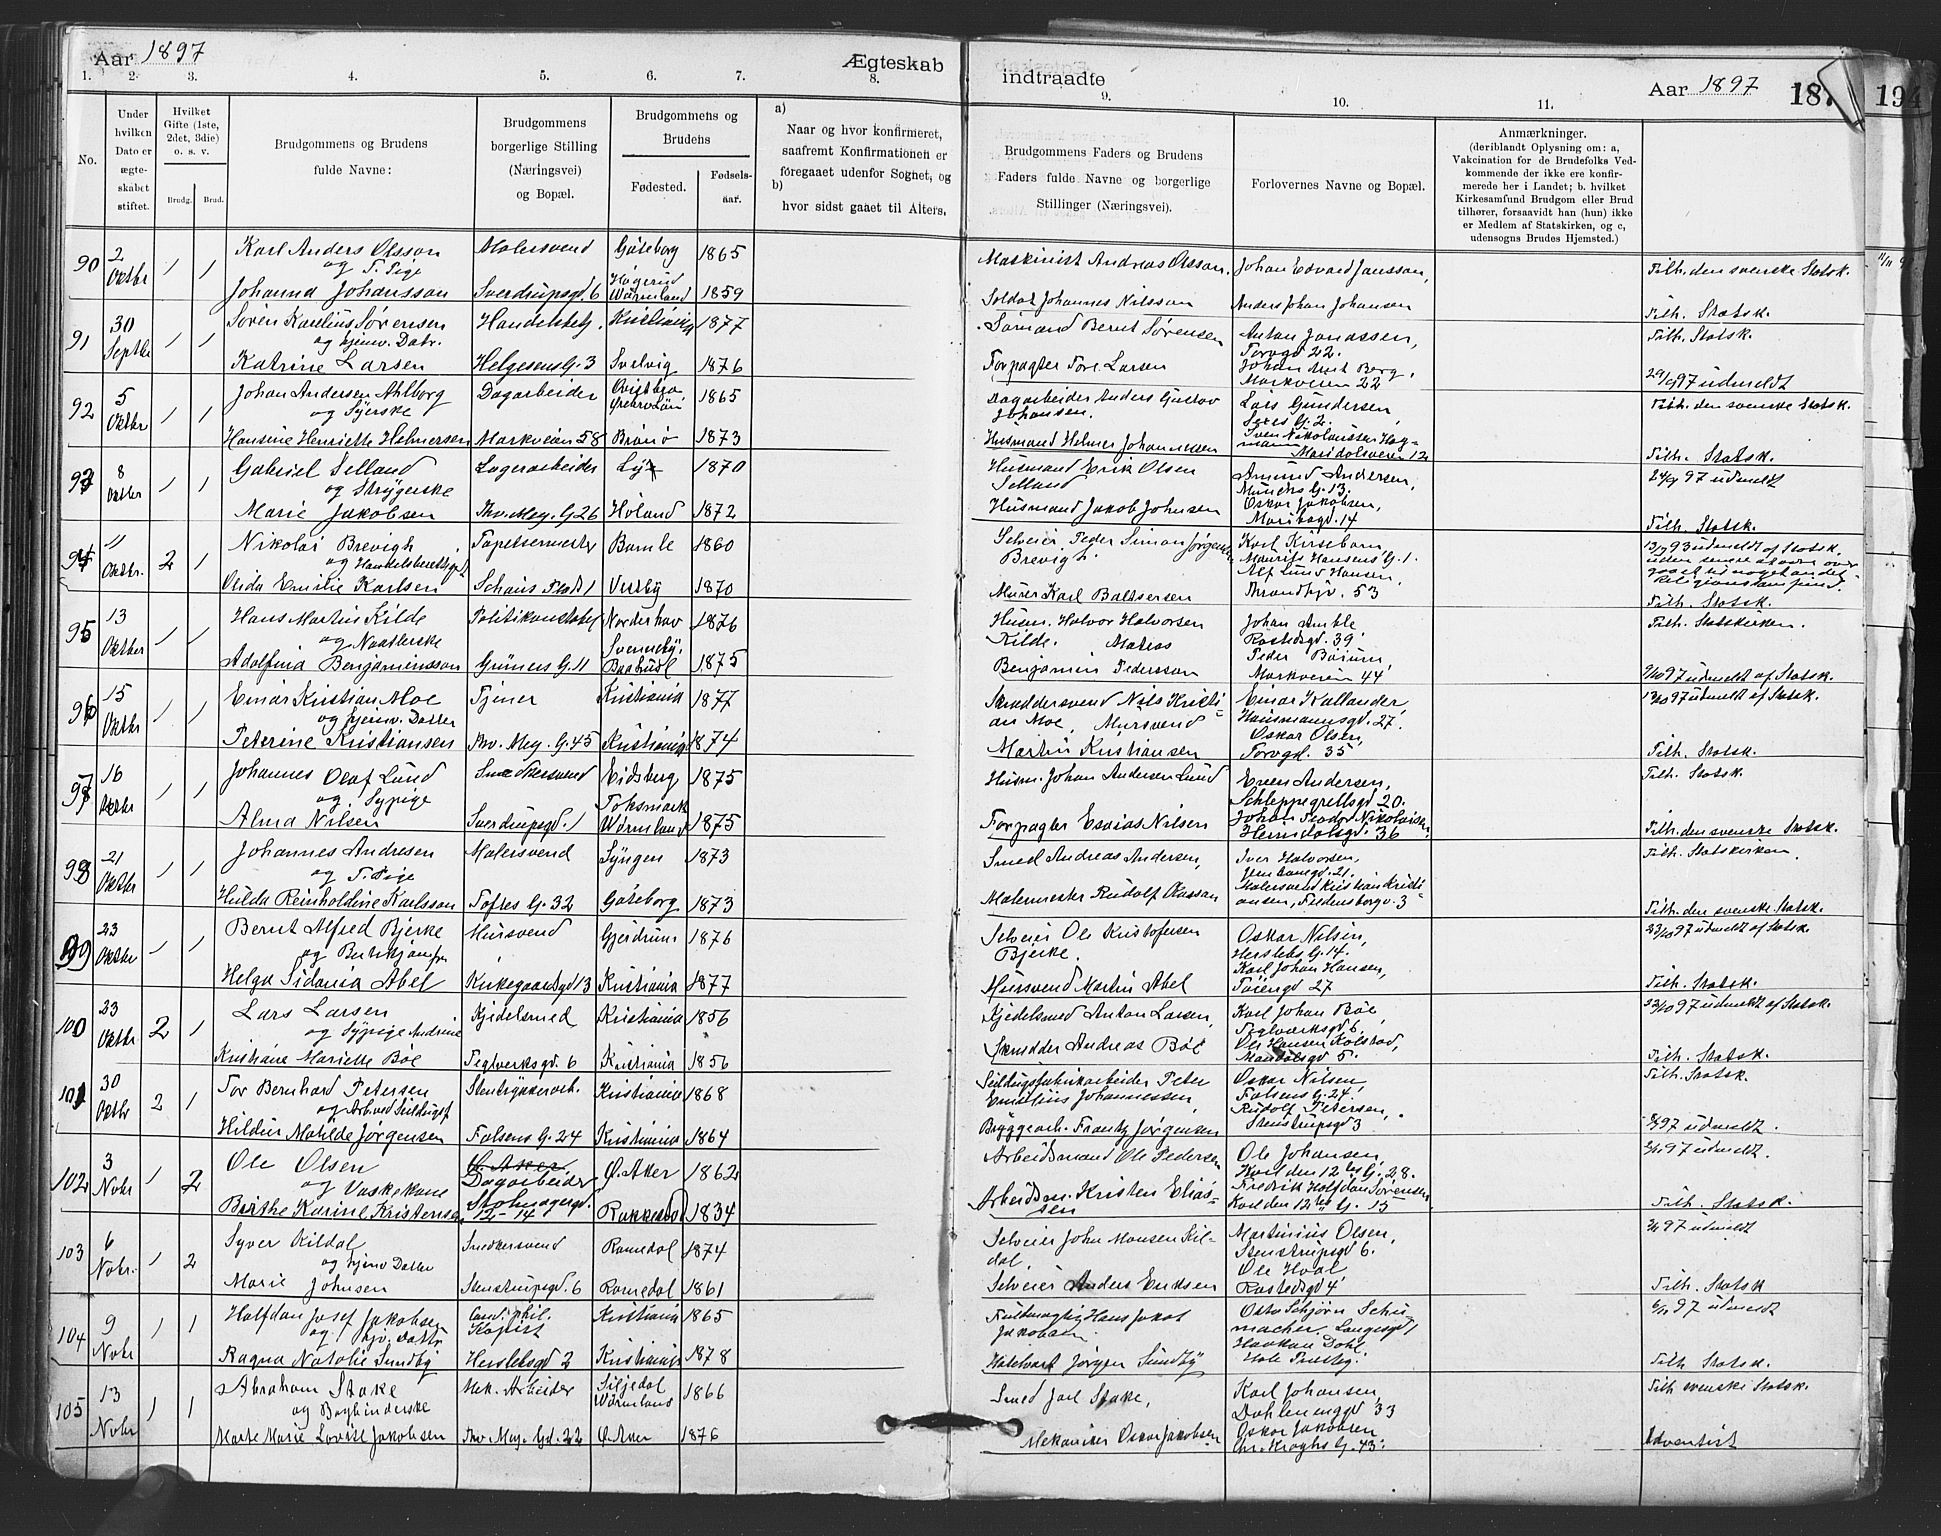 Aar 1897
Ægteskab
indtraadte
Aar 1897
187
194
1. 2. 3. 4. 5. 6. 7. 8. 9. 10. 11.
No.
Under hvilken Dato er ægteskabet stiftet.
Hvilket Gifte (1ste, 2det, 3die) o. s. v.
Brudg. Brud.
Brudgommens og Brudens fulde Navne:
Brudgommens borgerlige Stilling (Næringsvei) og Bopæl.
Brudgommens og Brudens
Fødested. Fødselsaar.
a) Naar og hvor konfirmeret, saafremt Konfirmationen er foregaaet udenfor Sognet, og
b) hvor sidst gaaet til Alters.
Brudgommens Faders og Brudens Faders fulde Navne og borgerlige Stillinger (Næringsvei).
Forlovernes Navne og Bopæl.
Anmærkninger.
(deriblandt Oplysning om: a, Vakcination for de Brudefolks Vedkommende der ikke ere konfirmerede her i Landet; b. hvilket Kirkesamfund Brudgom eller Brud tilhører, forsaavidt han (hun) ikke er Medlem af Statskirken, og c, udensogns Brudes Hjemsted.)
90 2 Oktbr 1 1 Karl Anders Olsson Malersvend Göteborg 1865 Maskinist Andreas Olsson. Johan Edvard Jansson, Tilh. den svenske Statsk.
og T. Pige
Johanna Johansson Sverdrupsgd. 6 Högerud Wärmland 1859 Soldat Johannes Nilsson Anders Johan Johansen Tilh. Statsk.
91 30 Septbr 1 1 Søren Karelius Sørensen Kristiania 1877 Sømand Bernt Sørensen Anton Jonassen, Torvgd 22. Tilh. Statsk.
og hjemv. Datr.
Katrine Larsen Helgesens G. 3 Svelvig 1876 Forpagter Tore Larsen Johan Berg. Markveien 22 29/9 97 udmeldt
92 5 Oktbr 1 1 Johan Andersen Ahlborg Dagarbeider Örebro Län 1865 Dagarbeider Anders Gustav Johansen. Lars Gundersen Tilh. den svenske Statsk.
og Syerske
Hansine Henriette Helmersen Markveien 58 Brønø 1873 Husmand Helmer Johannesen Sven Nikolaussen Hagmann Maridalsveien 12 Tilh. Statsk.
93 8 Oktbr 1 1 Gabriel Selland Lagerarbeider 1870 Husmand Erik Olsen Selland Amund Andersen, Munchs G. 13. 24/9 97 udmeldt
og Strygerske
Marie Jakobsen Thv. Mey. G. 26 Høland 1872 Husmand Jakob Johnsen Oskar Jakobsen, Maribogd. 14 Tilh. Statsk.
94 11 Oktbr. 2 1 Nikolai Brevigh Tapetsermester Bamle 1860 Selveier Peder Simon Jørgensen Brevig Karl Kirsebom Maurits Hansens G. 1. 13/9 93 udmeldt af Statsk. uden senere at være overgaaet til noget andet Religionssamfund.
og Handelsberettiget
Olida Emilie Karlsen Schous Plads 1 Vestby 1870 Murer Karl Baltsersen Alf Lund Hansen, Trondhjv. 53 Tilh. Statsk.
95 13 Oktber 1 1 Hans Martin Kilde Politikonstabel Norderhov 1876 Husm. Halvor Halvorsen Kilde. Johan Amble Rostedsgd. 39 Tilh. Statskirken.
og Naatlerske
Adolfina Benjaminsson Grüners G. 11 1875 Matias Benjamin Pedersson Peder Bøium, Markveien 44 9/10 97 udmeldt af Statsk.
96 15 Oktbr 1 1 Einar Kristian Moe Tjener Kristiania 1877 Skræddersvend Nils Kristian Moe Einar Kallander, Hausmannsgd. 27. 13/10 97 udmeldt af Statsk.
og hjemv. Datter
Peterine Kristiansen Thv. Mey. G. 45 Kristiania 1874 Mursvend Martin Kristiansen Oskar Olsen, Torvgd. 35 Tilh. Statsk.
97 16 Oktbr 1 1 Johannes Olaf Lund Snedkersvend Eidsberg 1875 Husm. Johan Andersen Lund Even Andersen, Schleppegrellsgd 20. Tilh. Statsk.
og Sypige
Alma Nilsen Sverdrupsgd. 1 Töksmark Wärmland 1875 Forpagter Esaias Nilsen Johan Teodor Nikolaisen Herredalsgd. 36 Tilh. den svenske Statsk.
98 21 Oktbr 1 1 Johannes Andresen Malersvend Lyngen 1873 Smed Andreas Andersen, Iver Halvorsen, Jens Bangd. 21. Tilh. Statskirken.
og T. Pige
Hulda Reinholdine Karlsson Toftes G. 32 Göteborg 1873 Malermester Rudolf Classon Malersvend Kristian Kristiansen, Fredensborgv. 3 Tilh. den svenske Statsk.
99 23 Oktbr 1 1 Bernt Alfred Bjerke Mursvend Gjerdrum 1876 Selveier Ole Kristofersen Bjerke. Oskar Nilsen, Herslebs G. 14. 23/10 97 udmeldt af Statsk.
og Butikjomfru
Helga Sidania Abel Kirkegaardsgd 13 Kristiania 1877 Mursvend Martin Abel Karl Johan Hansen, Tøiengd 27 Tilh. Statsk.
100 23 Oktbr 2 1 Lars Larsen Kjedelsmed Kristiania 1856 Kjedelsmed Anton Larsen, Karl Johan Bøe, Teglverksgd 6, 23/10 97 udmeldt af Statsk.
og Sypige Andrine
Kristiane Mariette Bøe Teglverksgd. 6 Kristiania 1856 Skrædder Andreas Bøe Ole Hansen Kolstad, Mandalsgd 5. Tilh. Statsk.
101 30 Oktbr 2 1 Tor Bernhard Petersen Stentrykkerarb. Kristiania 1868 Seildugsfabrikarbeider Peter Emilius Johannessen, Oskar Nilsen Falsens G. 24. Tilh. Statsk.
og Arb. ved Seildugsf.
Hildur Matilde Jørgensen Falsens G. 24 Kristiania 1864 Bryggearb. Frantz Jørgensen Rudolf Petersen, Stenstrupsgd 3 97 udmeldt.
102 3 Nobr 1 2 Ole Olsen Dagarbeider Ø. Aker 1862 Arbeidsmand Ole Pedersen Ole Johansen, Karl den 12tes G. 28. 97 udmeldt.
og Vaskekone
Birthe Karine Kristensen 12-14 Rakkestad 1834 Arbeidsm. Kristen Eliassen Fredrik Halfdan Sørensen Karl den 12tes G. 15 Tilh. Statsk.
103 6 Nobr. 1 2 Syver Kildal Snedkersvend Romedal 1874 Selveier John Monsen Kildal. Martinius Olsen, Stenstrupsgd 6. 97 udmeldt
og hjemv Datter
Marie Johnsen Stenstrupsgd. 6 Romedal 1861 Selveier Anders Eriksen Ole Hval Rostedsgd 4 Tilh. Statsk
104 9 Nobr 1 1 Halfdan Josef Jakobsen Cand. phil. Kopist Kristiania 1865 Fuldmægtig Hans Jakob Jakobsen Otto Schjørn Schumacher, Langesgd 1 97 udmeldt
og hjv. Dattr
Ragna Natalie Sundby Herslebsgd 2 Kristiania 1878 Hotelvært Jørgen Sundby Haakon Dahl, Hole Presteg. Tilh Statsk.
105 13 Nobr 1 1 Abraham Stake Mek. Arbeider Wärmland 1866 Smed Joel Stake, Karl Johansen, Dahlenenggd 33 Tilh svenske Statsk.
og Bogbinderske
Marte Marie Lovise Jakobsen Thv. Mey. Gd. 22 Ø. Aker 1876 Mekaniker Oskar Jakobsen Oskar Jakobsen Chr. Kroghs G. 43. Adventist